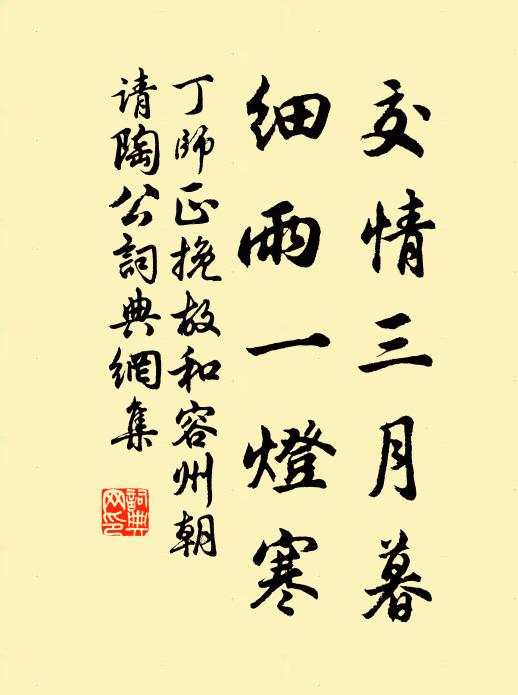 交情三月暮
细雨一燈寒
丁師正挽故和容州朝
请陶公詞典網集
詞典网印